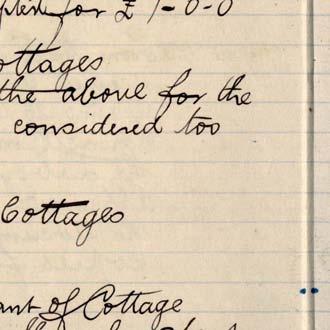 for £1-0-0
Cottages
the above for the
considered too
Cottages
of Cottage